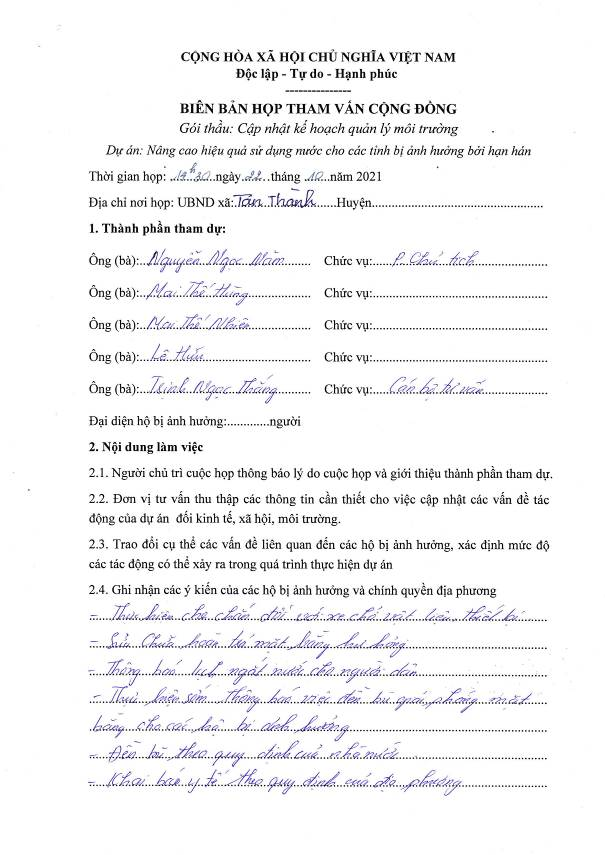 CỘNG HÒA XÃ HỘI CHỦ NGHĨA VIỆT NAM
Độc lập - Tự do - Hạnh phúc
---------------
BIÊN BẢN HỌP THAM VẤN CỘNG ĐỒNG
Gói thầu: Cập nhật kế hoạch quản lý môi trường
Dự án: Nâng cao hiệu quả sử dụng nước cho các tỉnh bị ảnh hưởng bởi hạn hán
Thời gian họp: ngày 22 tháng 10 năm 2021
Địa chỉ nơi họp: UBND xã: Tân Thành Huyện
1. Thành phần tham dự:
Ông (bà): Nguyễn Ngọc Chức vụ: P. Chủ tịch
Ông (bà): Mai Thế Hùng Chức vụ:
Ông (bà): Mai Thế Nhiên Chức vụ:
Ông (bà): Lê Hữu Chức vụ:
Ông (bà): Trịnh Ngọc Thắng Chức vụ: Cán bộ tư vấn
Đại diện hộ bị ảnh hưởng:.............người
2. Nội dung làm việc
2.1. Người chủ trì cuộc họp thông báo lý do cuộc họp và giới thiệu thành phần tham dự.
2.2. Đơn vị tư vấn thu thập các thông tin cần thiết cho việc cập nhật các vấn đề tác
động của dự án đối kinh tế, xã hội, môi trường.
2.3. Trao đổi cụ thể các vấn đề liên quan đến các hộ bị ảnh hưởng, xác định mức độ
các tác động có thể xảy ra trong quá trình thực hiện dự án
2.4. Ghi nhận các ý kiến của các hộ bị ảnh hưởng và chính quyền địa phương
- Thực hiện che chắn đối với xe chở vật liệu, thiết bị
- Sửa chữa hoàn trả mặt bằng hư hỏng
- Thông báo lịch ngắt nước cho người dân
- Thực hiện sớm thông báo việc đền bù giải phóng mặt
bằng cho các hộ bị ảnh hưởng
- Đền bù theo quy định của nhà nước
- Khai báo y tế theo quy định của địa phương